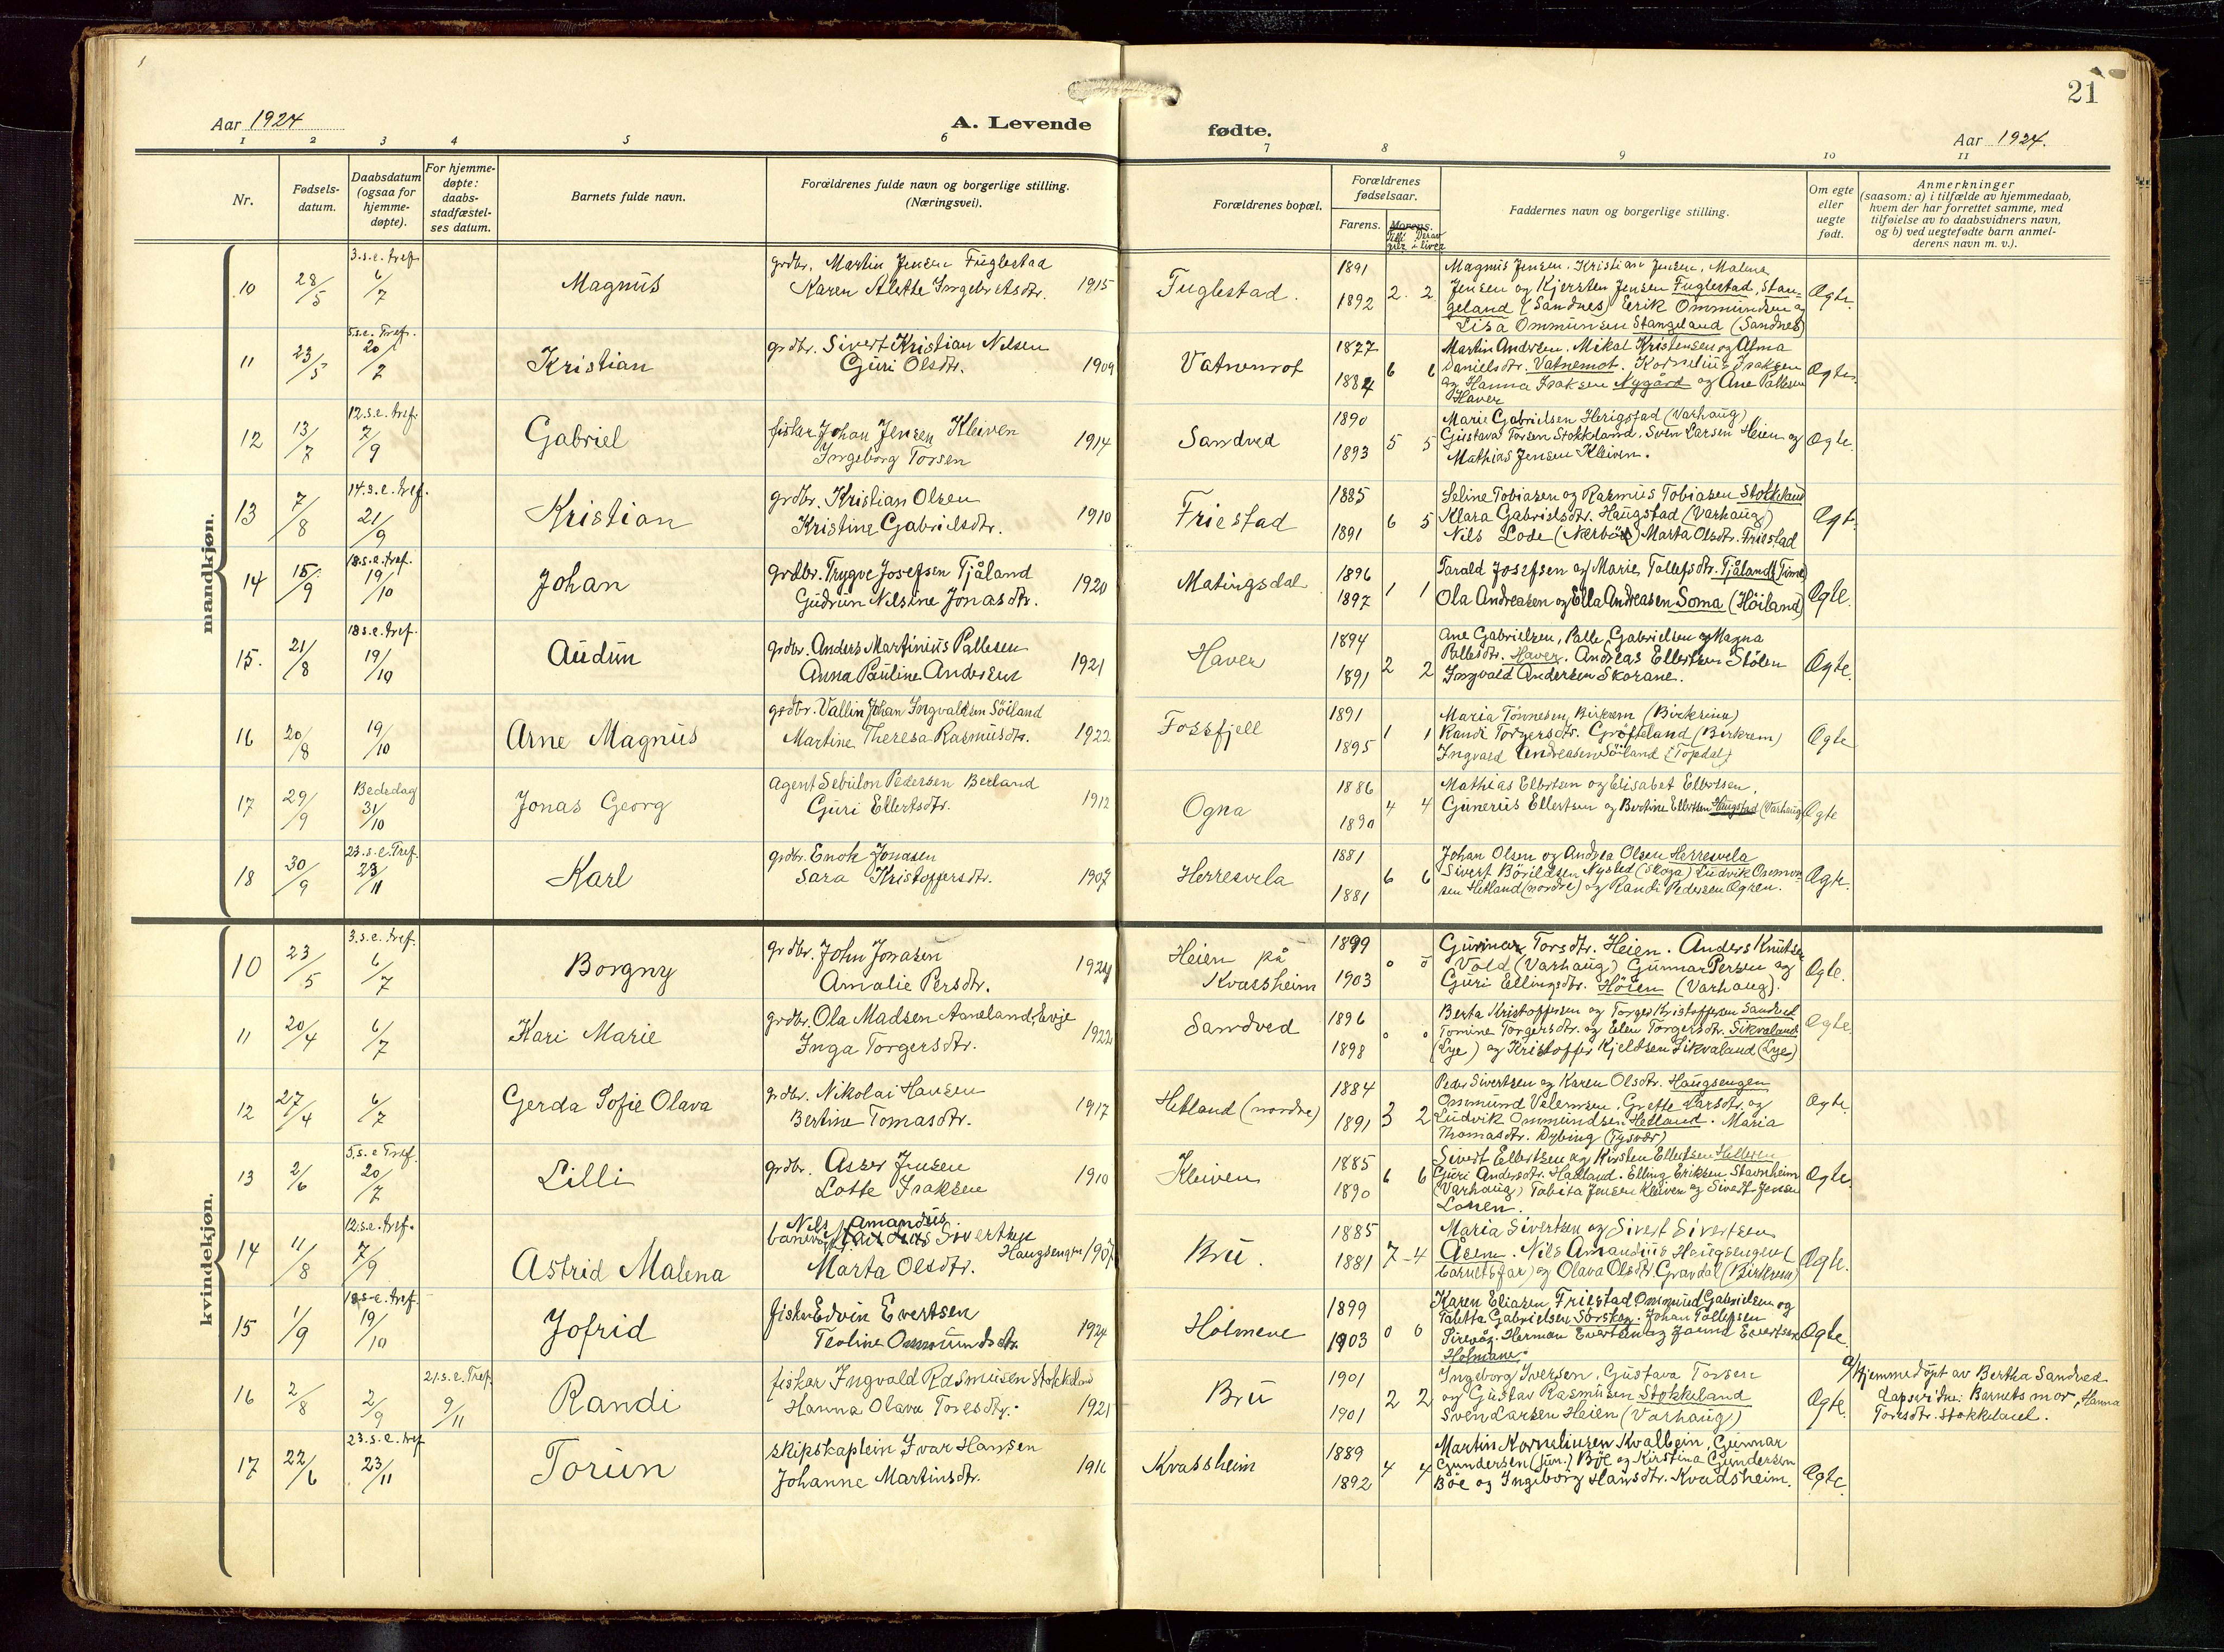 21
Aar 1924
A. Levende
fødte.
Aar 1924.
1 2 3 4 5 6 7 8 9 10 11
Nr.
Fødsels-
datum.
Daabsdatum
(ogsaa for
hjemme-
døpte).
For hjemme-
døpte:
daabs-
stadfæstel-
ses datum.
Barnets fulde navn.
Forældrenes fulde navn og borgerlige stilling.
(Næringsvei).
Forældrenes bopæl.
Forældrenes
fødselsaar.
Farens. Morens.
Faddernes navn og borgerlige stilling.
Om egte
eller
uegte
født.
Anmerkninger
(saasom: a) i tilfælde av hjemmedaab,
hvem der har forrettet samme, med
tilføielse av to daabsvidners navn,
og b) ved uegtefødte barn anmel-
derens navn m. v.).
mandkjøn.
3.s.e.tref.
10 28/5 6/7 Magnus
grdbr. Martin Jensen Fuglestad
Karen Alette Ingebretsdtr. 1915
Fuglestad.
1891
1892 2. 2
Magnus Jensen, Kristian Jensen, Malena
Jensen og Kjersten Jensen Fuglestad, Stan-
geland (Sandnes) Eerik Ommundsen og
Lisa Ommunsen Stangeland (Sandnes)
Ægte.
5.s.e. Tref.
11 23/5 20/7 Kristian
grdbr. Sivert Kristian Nilsen
Guri Olsdtr. 1909
Vatnemot
1877
1884 6 6
Martin Andrsen. Mikal Kristensen og Alma
Danielsdtr. Vatnemot. Kornelius Isaksen
og Hanna Isaksen Nygård og Ane Pallesen
Haver
Ægte.
12.s.e. tref.
12 13/7 7/9 Gabriel
fisker Johan Jensen Kleiven
Ingeborg Torsen 1914
Sandved
1890
1893 5 5
Marie Gabrielsen Herigstad (Varhaug)
Gustava Torsen Stokkeland. Sven Larsen Heien og
Mathias Jensen Kleiven.
Ægte.
14.s.e. tref.
13 7/8 21/9 Kristian
grdbr. Kristian Olsen
Kristine Gabrielsdtr. 1910
Friestad
1885
1891 6 5
Seline Tobiasen og Rasmus Tobiasen Stokkeland
Klara Gabrielsdtr. Haugstad (Varhaug)
Nils Lode (Nærbö) Marta Olsdtr. Friestad
Ægt.
18.s.e. tref.
14 15/9 19/10 Johan
grdbr. Trygve Josefsen Tjåland
Gudrun Nilsine Jonasdtr. 1920
Matingsdal
1896
1897 1 1
Tarald Josefsen og Marie Tollefsdtr. Tjåland (Time)
Ola Andreasen og Ella Andreasen Soma (Höiland)
Ægte.
18.s.e. tref.
15. 21/8 19/10 Audun
grdbr. Anders Martinius Pallesen
Anna Pauline Andersen 1921
Haver
1894
1891 2 2
Ane Gabrielsen, Palle Gabrielsen og Magna
Pallesdtr. Haver. Andreas Ellertsen Stölen
Ingvald Andersen Skorane.
Ægte.
16 20/8 19/10 Arne Magnus
grdbr. Vallin Johan Ingvaldsen Söiland
Martine Theresa Rasmusdtr. 1922
Fossfjell
1891
1895 1 1
Maria Tönnesen Birkrem (Birkrem)
Randi Torgersdtr. Gröfteland (Birkrem)
Ingvald Andreasen Söiland (Torsdal)
Ægte
Bededag
17 29/9 31/10 Jonas Georg
Agent Sebulon Pedersen Berland
Guri Ellertsdtr. 1912
Ogna
1886
1890 4 4
Mathias Elbertsen og Elisabet Elbertsen,
Gunerius Ellertsen og Bertine Ellertsen Haugstad (Varhaug)
Ægte
23.s.e. Tref.
18 30/9 23/11 Karl
grdbr. Enok Jonasen
Sara Kristoffersdtr. 1907
Herresvela
1881
1881 6 6
Johan Olsen og Andrea Olsen Herresvela
Sivert Börildsen Nysted (Skoga) Ludvik Ommun-
sen Hetland (nordre) og Randi Pedersen Ogren.
Ægte.
kvindekjøn.
3.s.e. tref.
10 23/5 6/7 Borgny
grdbr. John Jonasen
Amalie Persdtr. 1924
Heien på
Kvassheim
1899
1903 0 0
Gunnar Torsdtr. Heien. Anders Knutsen
Vold (Varhaug) Gunnar Persen og
Guri Ellingsdtr. Höien (Varhaug).
Ægte.
11 20/4 6/7 Kari Marie
grdbr. Ola Madsen Aaneland, Evje
Inga Torgersdtr. 1922
Sandved
1896
1898 0 0
Berta Kristoffersen og Torger Kristoffersen Sandved
Tomine Torgersdtr. og Elen Torgersdtr. Sikvaland
(Lye) og Kristoffer Kjeldsen Sikvaland (Lye)
Ægte.
12 27/4 6/7 Gerda Sofie Olava
grdbr. Nikolai Hansen
Bertine Tomasdtr. 1917
Hetland (nordre)
1884
1891 3 2
Peder Sivertsen og Karen Olsdtr. Haugsengen
Ommund Velemsen. Grette Larsdtr. og
Ludvik Ommundsen Hetland. Maria
Thomasdtr. Dybing (Tysvær)
Ægte.
5.s.e. Tref.
13 2/6 20/7 Lilli
grdbr. Asser Jensen
Lotte Isaksen 1910
Kleiven
1885
1890 6 6
Sivert Ellertsen og Kirsten Ellertsen Helleren
Guri Andersdtr. Hadland. Elling Eriksen Stavnheim
(Varhaug) Tabita Jensen Kleiven og Sivert Jensen
Lonen.
Ægte.
12.s.e. tref.
14 11/8 7/9 Astrid Malena
Nils Amandus
Sivertsen
Haugsengen
Marta Olsdtr. 1907
Bru.
1885
1881 7-4
Maria Sivertsen og Sivert Sivertsen
Åsen. Nils Amandus Haugsengen (
barnets far) og Olava Olsdtr. Gravdal (Birkrem)
Ægte.
18.s.e. tref.
15 1/9 19/10 Jofrid
fisker Edvin Evertsen
Teoline Ommundsdtr. 1924
Holmene
1899
1903 0 0
Karen Eliasen Friestad. Ommund Gabrielsen og
Tabetta Gabrielsen Sörskog. Johan Tollefsen
Sirevåg. Herman Evertsen og Janna Evertsen
Holmane.
Ægte.
21.s.e. Tref.
16 2/8 2/9 9/11 Randi
fisker Ingvald Rasmusen Stokkeland
Hanna Olava Toresdtr. 1921
Bru
1901
1901 2 2
Ingeborg Iversen. Gustava Torsen
og Gustav Rasmusen Stokkeland
Sven Larsen Heien (Varhaug)
Ægte.
a/ Hjemmedöpt av Bertha Sandved
Barnets mor, Hanna
Toresdtr. Stokkeland.
23.s.e. tref
17 22/6 23/11 Torun
Skipskaptein Ivar Hansen
Johanne Martinsdtr. 1916
Kvassheim
1889
1892 4 4
Martin Korneliusen Kvalbein, Gunnar
Gundersen (jun.) Böe og Kirstina Gundersen
Böe og Ingeborg Hansdtr. Kvadsheim.
Ægte.